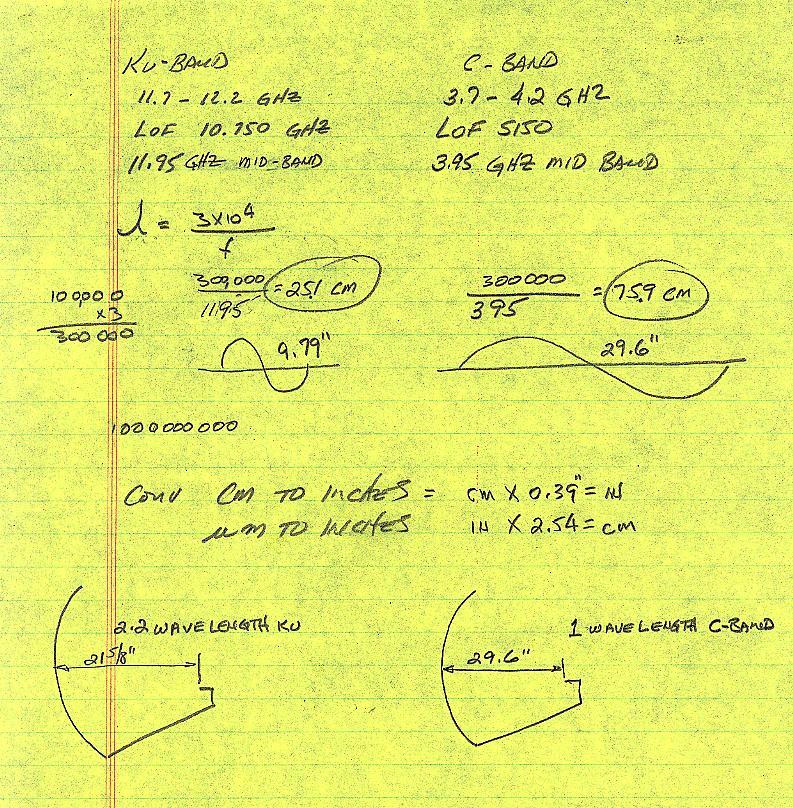 KU-BAND
11.7 - 12.2 GHZ
LOF 10.750 GHZ
11.95 GHZ MID-BAND
C - BAND
3.7 - 4.2 GHZ
LOF 5150
3.95 GHZ MID BAND
λ = 3X10⁴
f
100,000
X3
300000
300,000
1195
= 25.1 CM
9.79"
300000
395
= 75.9 CM
29.6"
1000000000
CONV CM TO INCHES = CM X 0.39" = IN
μm TO INCHES IN X 2.54 = CM
2.2 WAVELENGTH KU
21 5/8"
1 WAVELENGTH C-BAND
29.6"